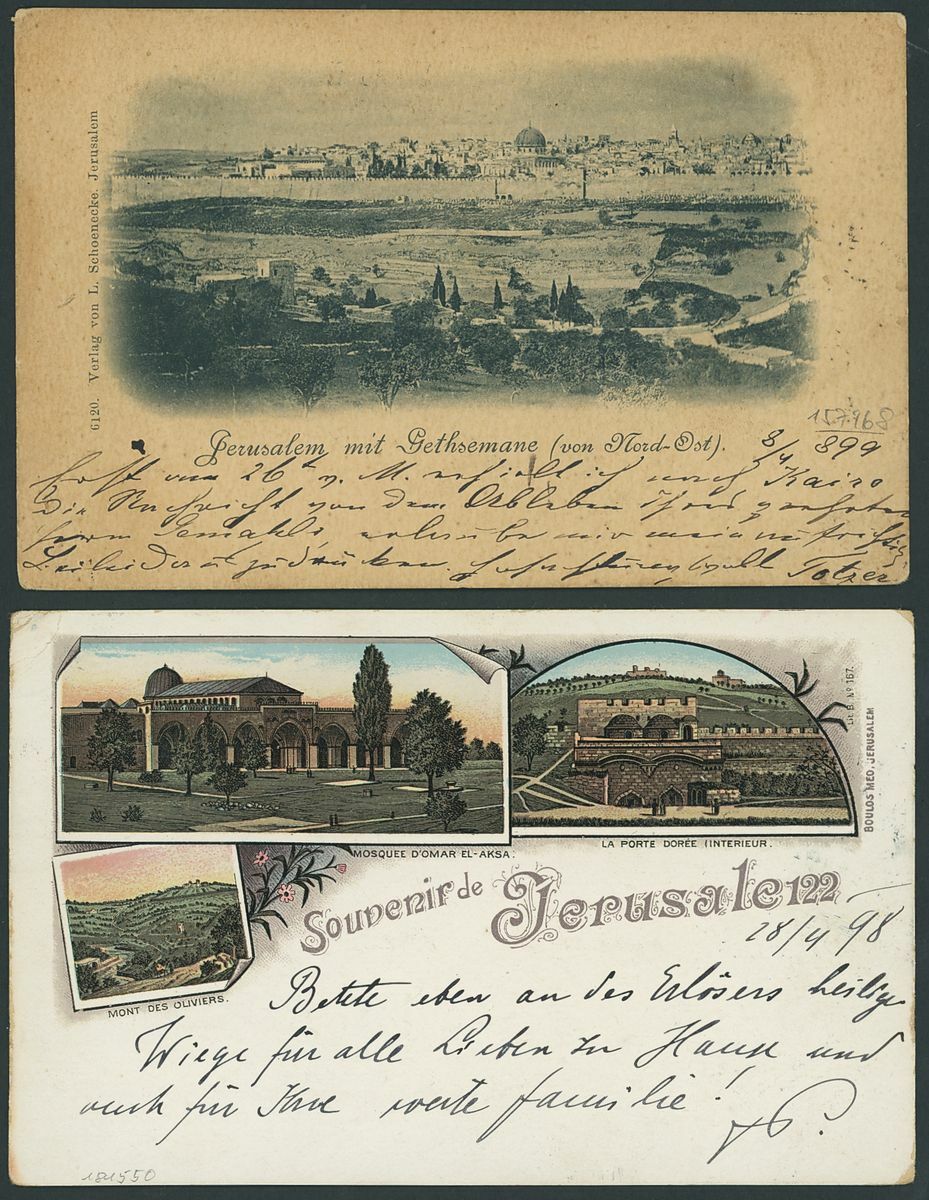 6120. Verlag von L. Schoenecke. Jerusalem
157968
Jerusalem mit Gethsemane (von Nord-Ost).
8/4 899
Erst am 26t v. M. erhielt ich nach Kairo
die Nachricht von dem Ableben Ihres geehrten
Herrn Gemahls, erlaube mir mein aufrichtig
Beileid auszudrücken.
Lit. B. Nº 167.
BOULOS MEO, JERUSALEM
MOSQUEE D'OMAR EL-AKSA.
LA PORTE DORÉE (INTERIEUR.
MONT DES OLIVIERS.
Souvenir de Jerusalem,
28/4 98
Betete eben an des Erlösers heilige
Wiege für alle Lieben zu Hause und
auch für Ihre werte Familie!
181550